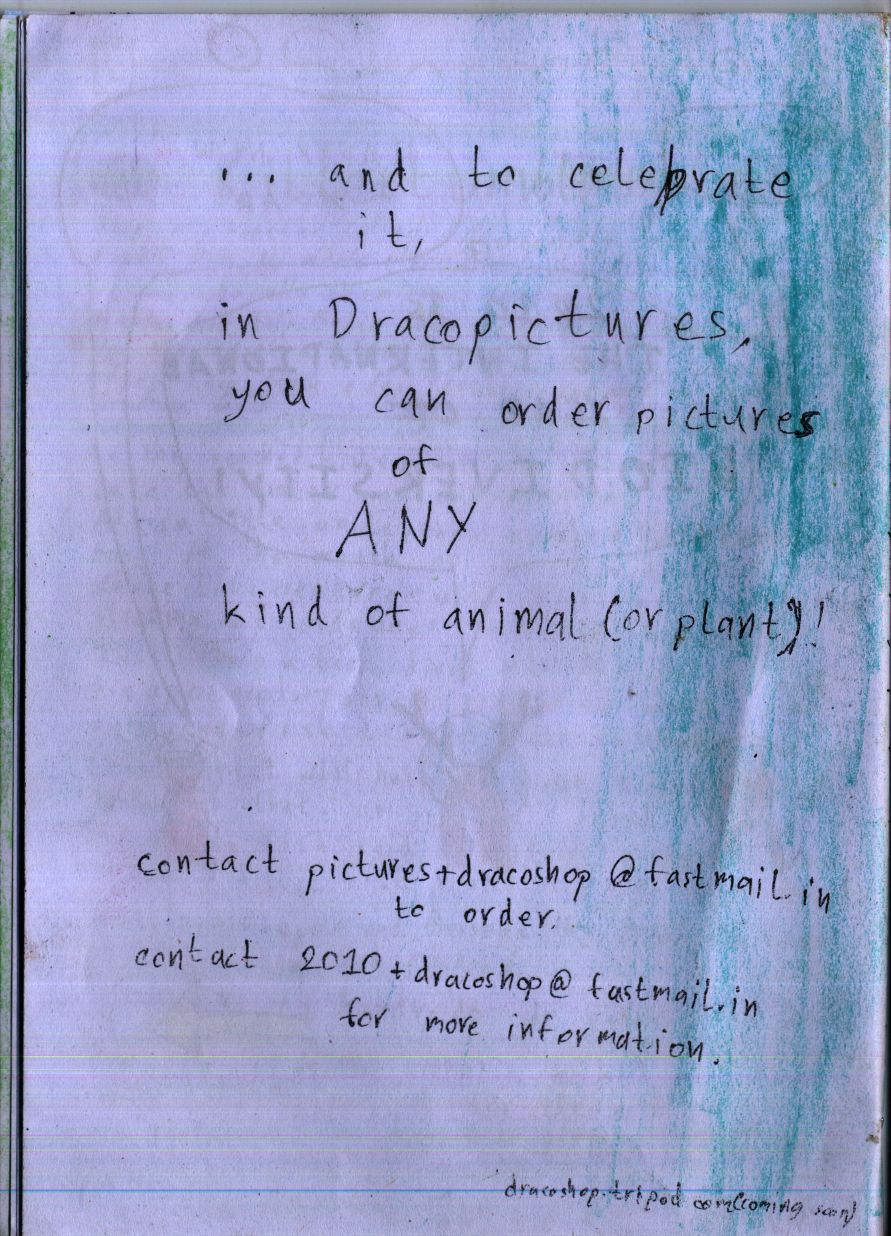 ... and to celebrate
it,
in Dracopictures,
you can order pictures
of
ANY
kind of animal (or plant)!
contact pictures+dracoshop@fastmail.in
to order.
contact 2010+dracoshop@fastmail.in
for more information.
dracoshop.tripod.com(coming soon)
THE INTERNATIONAL
BIODIVERSITY!